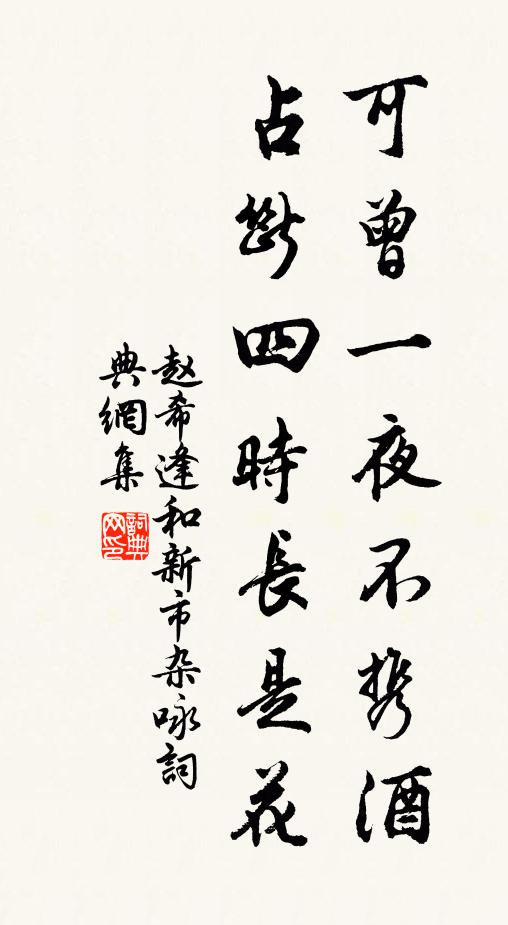 可曾一夜不携酒
占断四時長是花
赵希逢和新市杂咏詞
典網集
詞典
网印